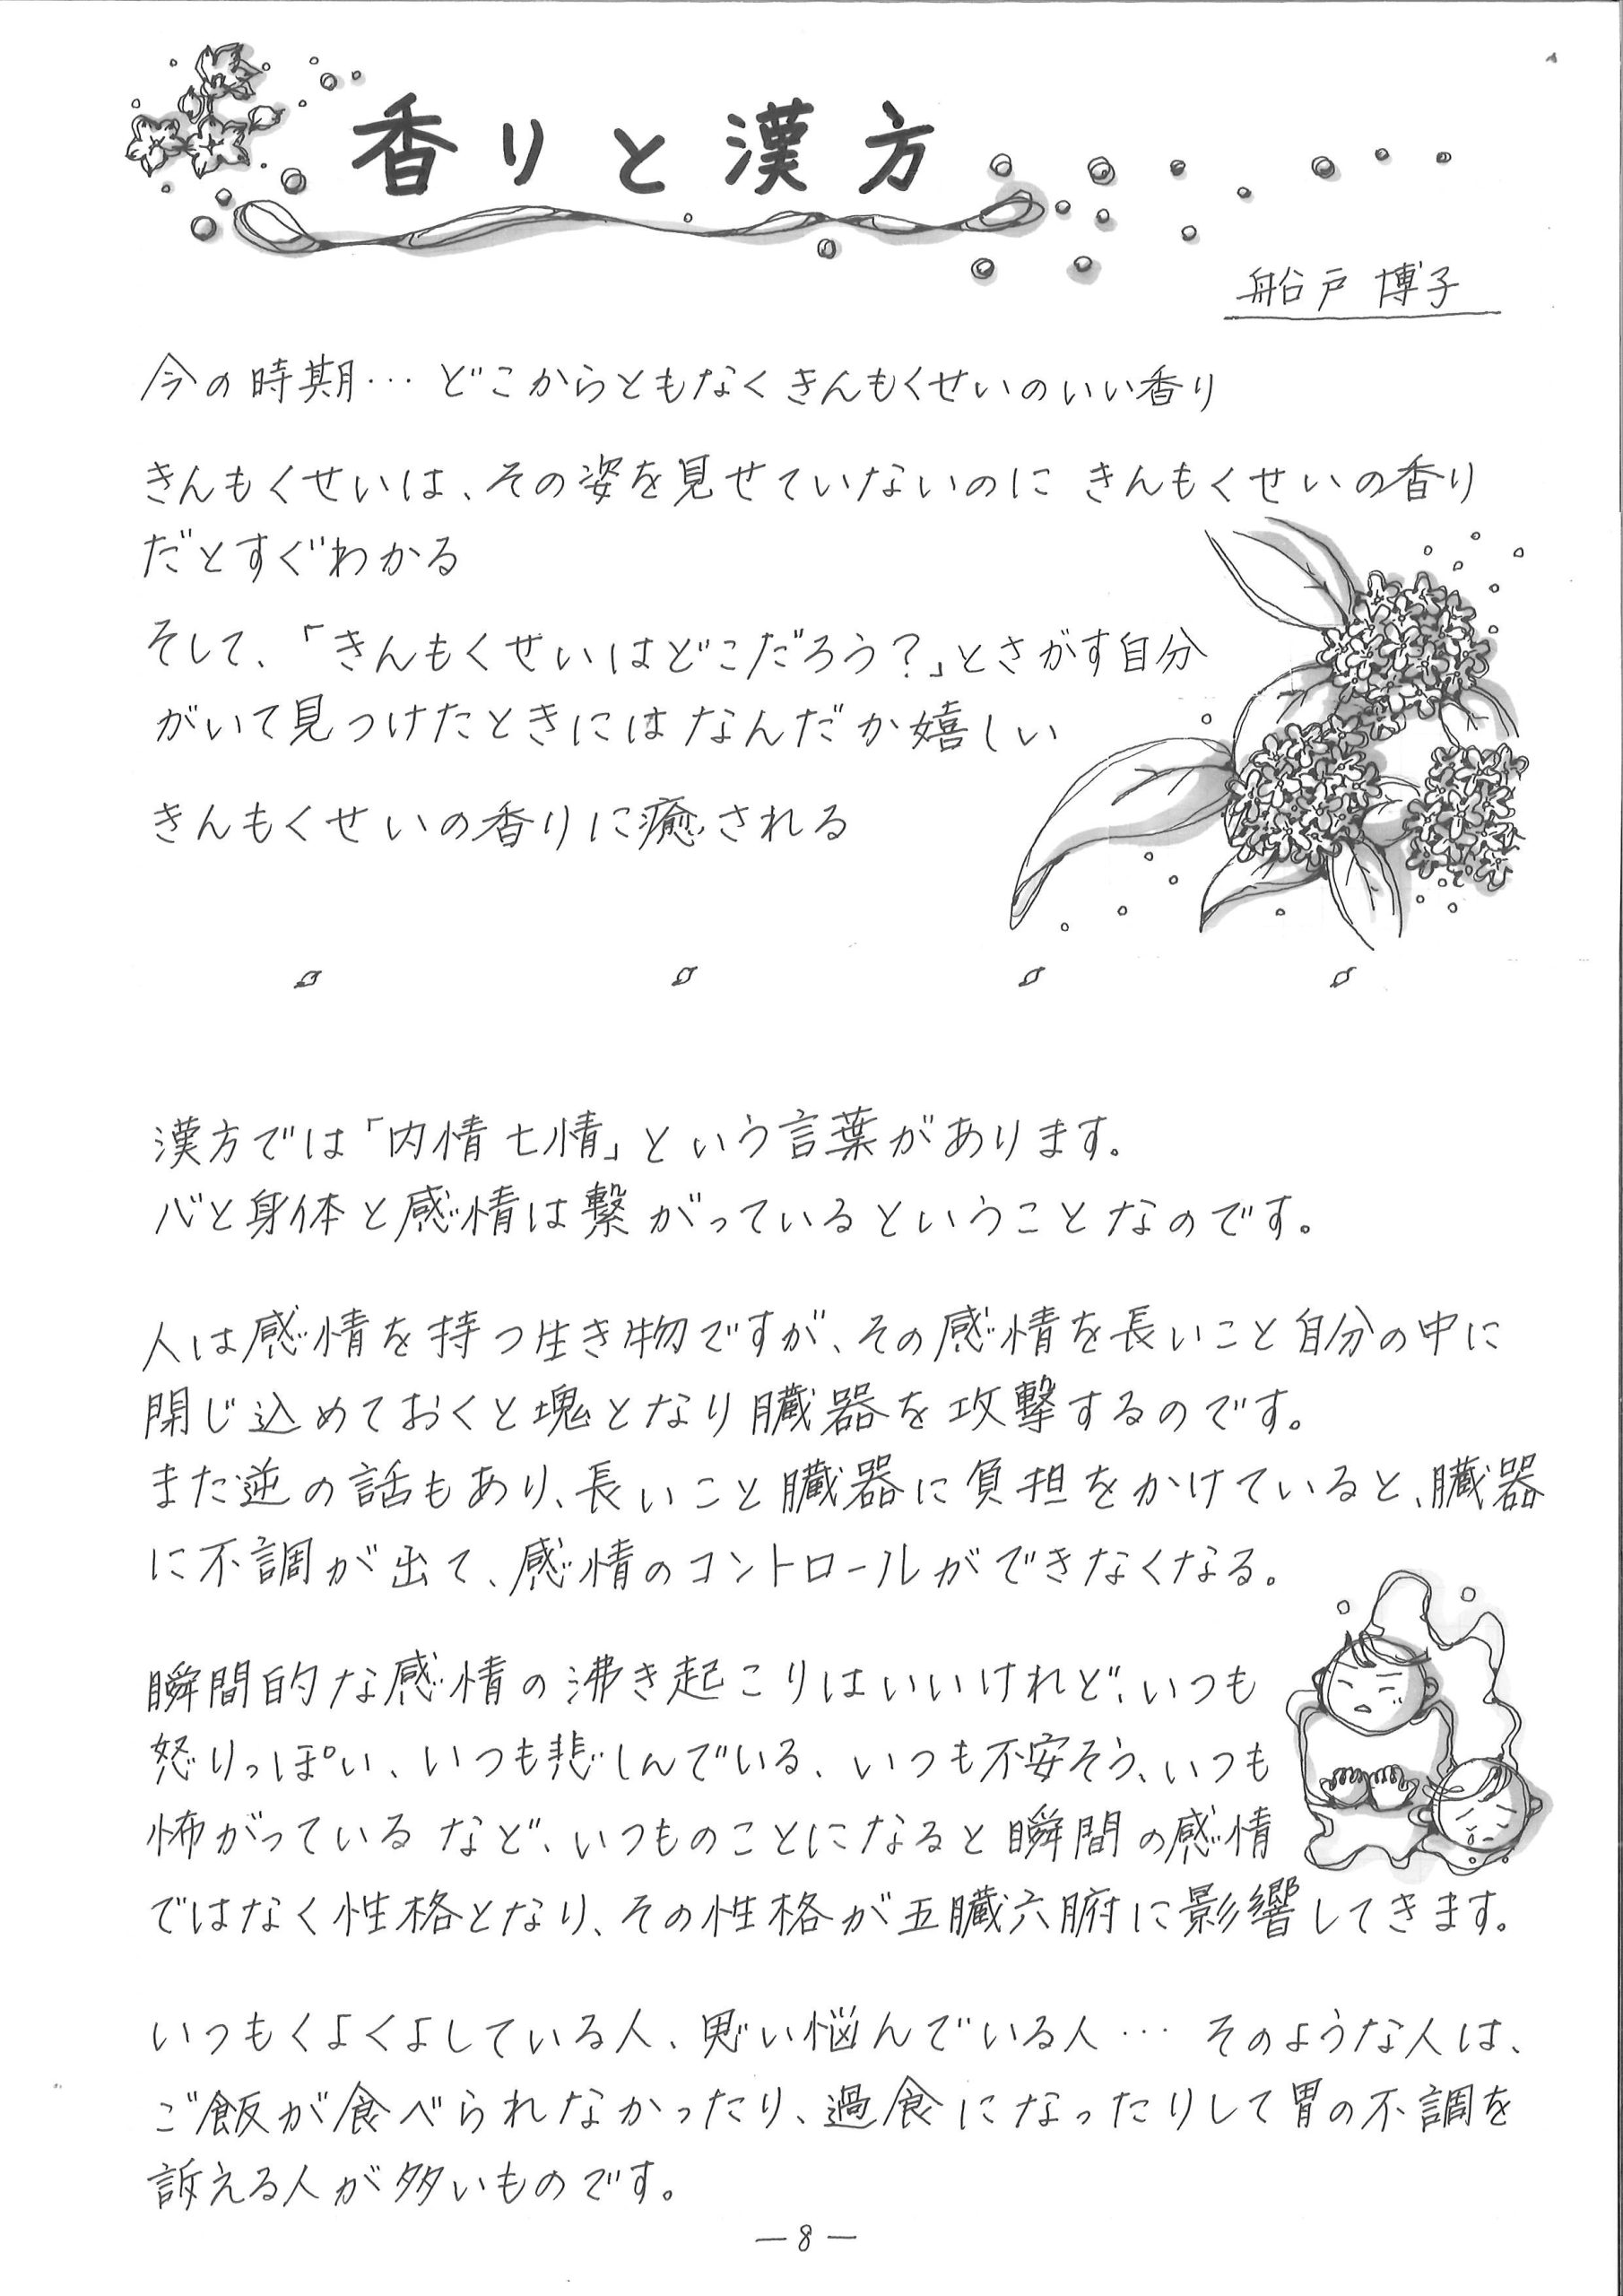 香りと漢方
船戸 博子
今の時期… どこからともなくきんもくせいのいい香り
きんもくせいは、その姿を見せていないのに きんもくせいの香り
だとすぐわかる
そして、「きんもくせいはどこだろう？」とさがす自分
がいて見つけたときにはなんだか嬉しい
きんもくせいの香りに癒される
漢方では「内情七情」という言葉があります。
心と身体と感情は繋がっているということなのです。
人は感情を持つ生き物ですが、その感情を長いこと自分の中に
閉じ込めておくと塊となり臓器を攻撃するのです。
また逆の話もあり、長いこと臓器に負担をかけていると、臓器
に不調が出て、感情のコントロールができなくなる。
瞬間的な感情の沸き起こりはいいけれど、いつも
怒りっぽい、いつも悲しんでいる、いつも不安そう、いつも
怖がっている など、いつものことになると瞬間の感情
ではなく性格となり、その性格が五臓六腑に影響してきます。
いつもくよくよしている人、思い悩んでいる人… そのような人は、
ご飯が食べられなかったり、過食になったりして胃の不調を
訴える人が多いものです。
－8－